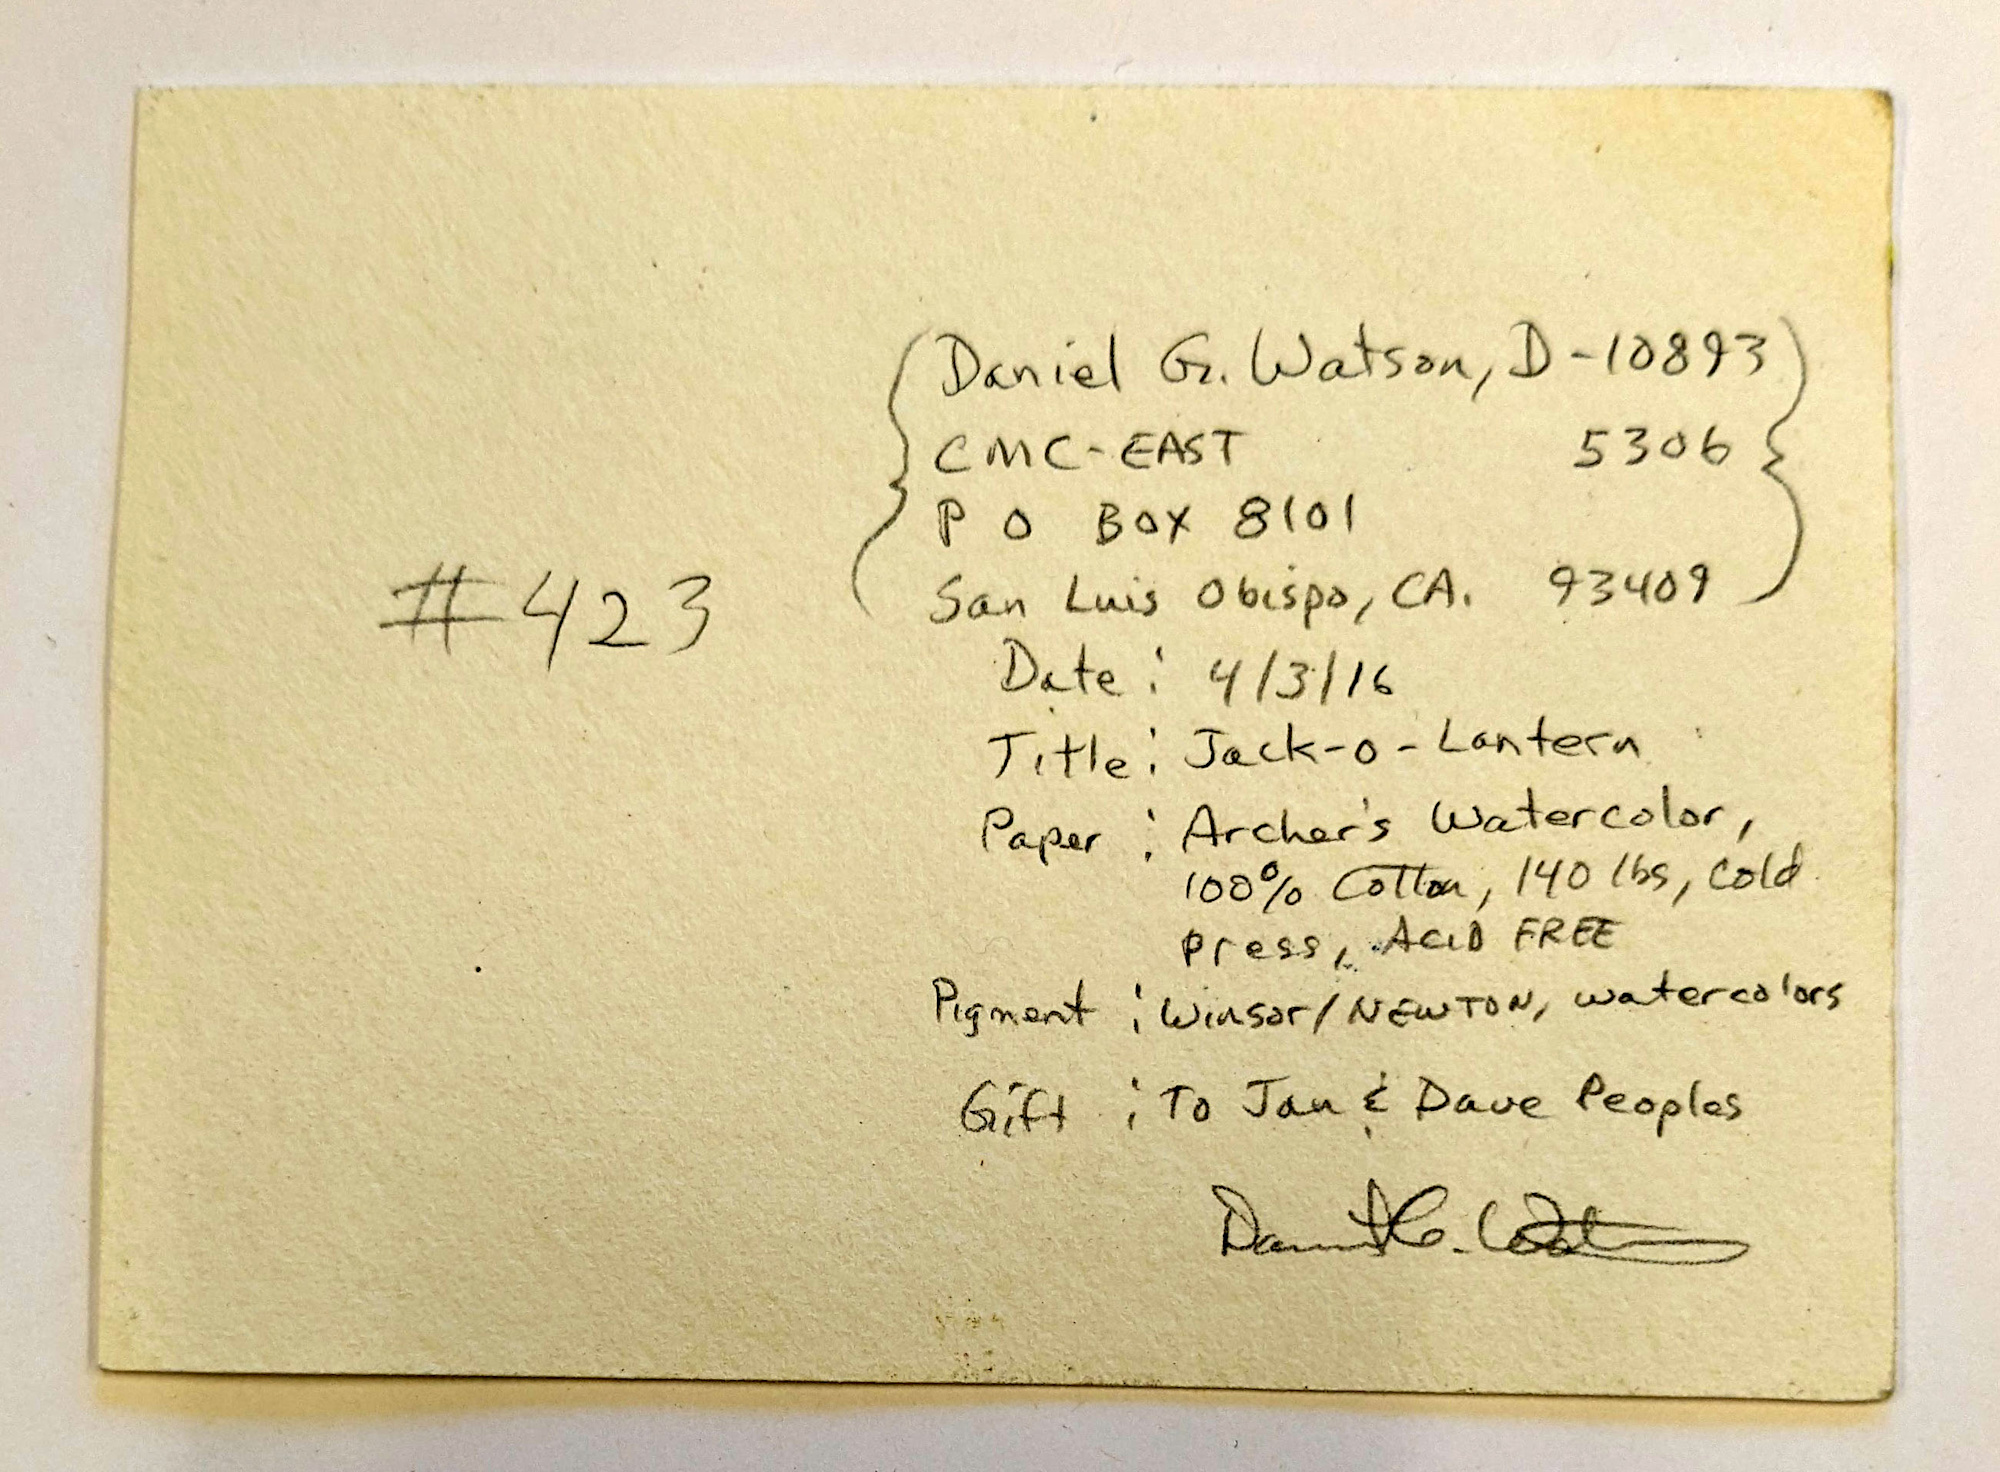 Daniel G. Watson, D-10893
CMC-EAST 5306
P O BOX 8101
San Luis Obispo, CA. 93409
#423
Date: 4/3/16
Title: Jack-o-Lantern
Paper: Archer's Watercolor,
100% Cotton, 140 lbs, cold
press, ACID FREE
Pigment: Winsor/NEWTON, watercolors
Gift: To Jan & Dave Peoples
Daniel G. Watson